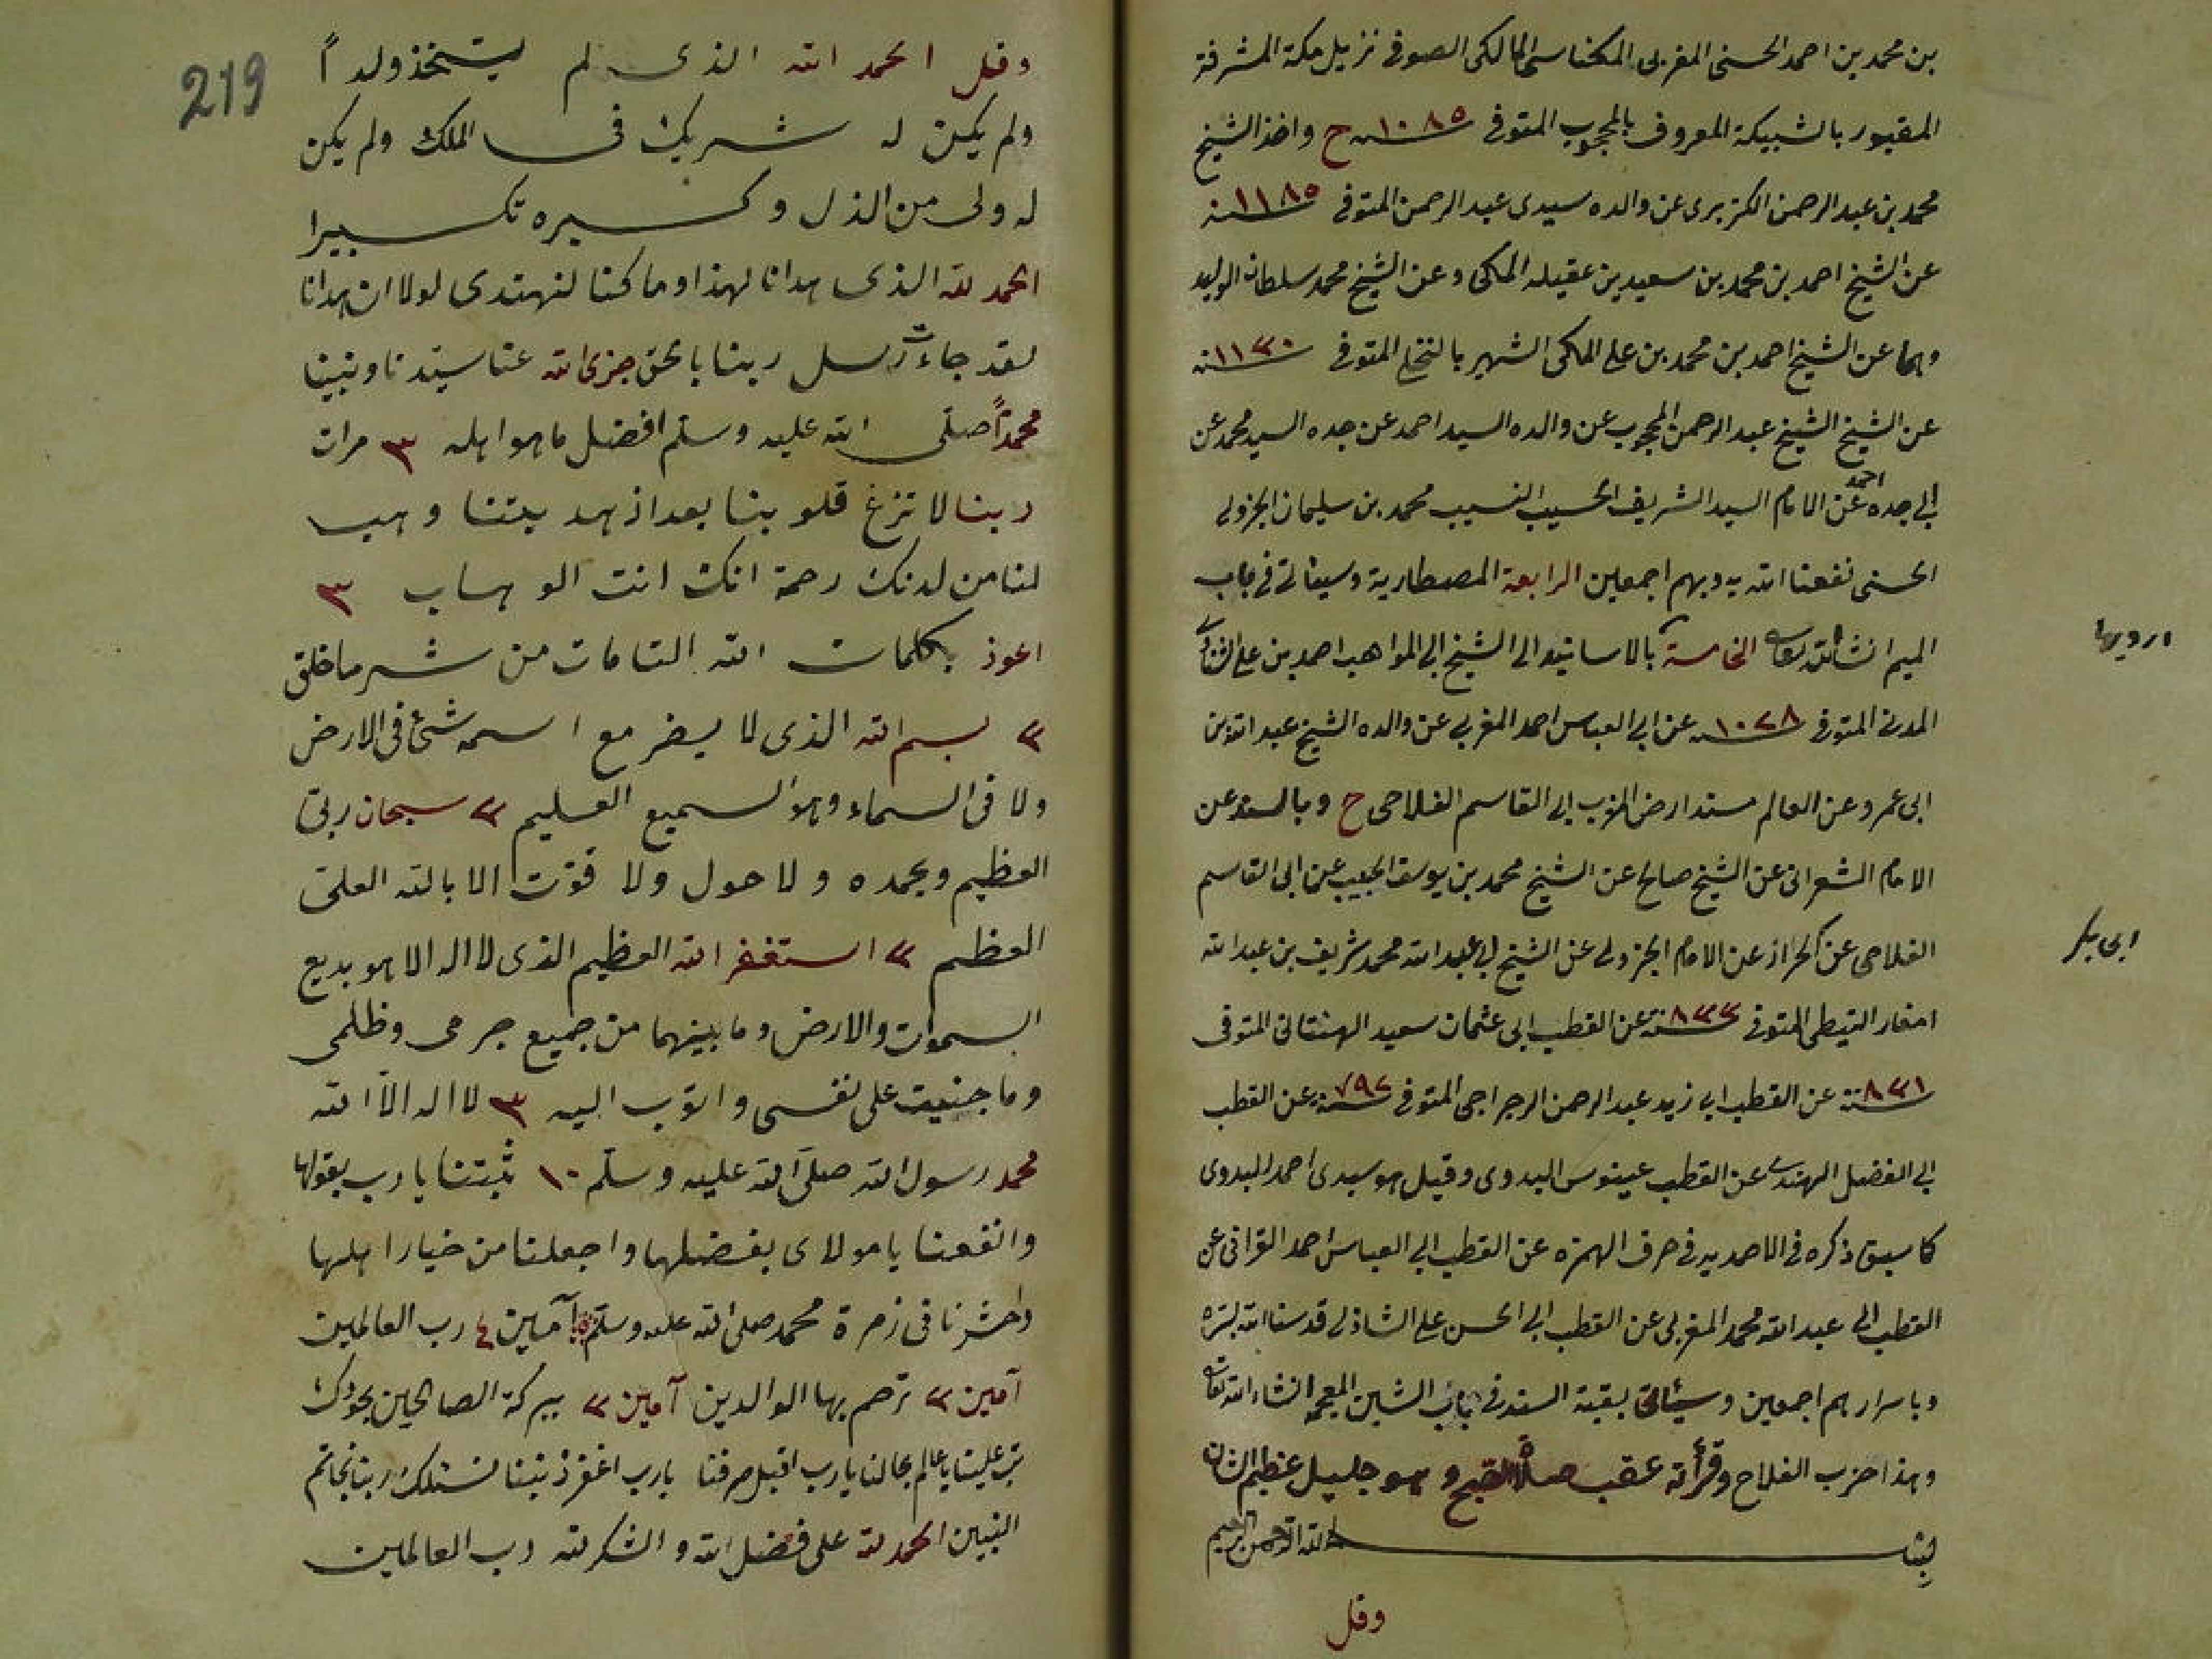 بن محمد بن احمد الحسنى المغربى المكناسى المالكى الصوفى نزيل مكة المشرفة
المقبور بالشبيكة المعروف بالمحجوب المتوفى سنه ١٠٨٥ ح واخذ الشيخ
محمد بن عبد الرحمن الكزبرى عن والده سيدى عبد الرحمن المتوفى سنه ١١٨٥
عن الشيخ احمد بن محمد بن سعيد بن عقيله المكى وعن الشيخ محمد سلطان الوليد
وهما عن الشيخ احمد بن محمد بن على المكى الشهير بالنخلى المتوفى سنه ١١٣٠
عن الشيخ الشيخ عبد الرحمن المحجوب عن والده السيد احمد عن جده السيد محمد عن
ابى جده احمد عن الامام السيد الشريف الحسيب النسيب محمد بن سليمان الجزولى
الحسنى نفعنا الله به وبهم اجمعين الرابعة المصطارية وسيئاتى فى باب
الميم انشاالله تعالى الخامسة بالاسانيد الى الشيخ ابى المواهب احمد بن على الشناوى
المدنى المتوفى سنه ١٠٢٨ عن ابى العباس احمد المغربى عن والده الشيخ عبد الله بن
ابى عمرو عن العالم مسند ارض المغرب ابى القاسم الفلاحى ح وبالسند عن
الامام الشعرانى عن الشيخ صالح عن الشيخ محمد بن يوسف الحبيب عن ابى القاسم
الفلاحى عن الحراز عن الامام الجزولى عن الشيخ ابى عبد الله محمد شريف بن عبد الله
امغار التيطى المتوفى سنة ٨٢٢ عن القطب ابى عثمان سعيد الهنتانى المتوفى
سنة ٨٢١ عن القطب ابى زيد عبد الرحمن الرجراجى المتوفى سنه ٧٩٢ عن القطب
ابى الفضل الهندى عن القطب عينوس البدوى وقيل هو سيدى احمد البدوى
كما سبق ذكره فى الاحمديه فى حرف الهمزه عن القطب ابى العباس احمد القرافى عن
القطب ابى عبد الله محمد المغربى عن القطب ابى الحسن على الشاذلى قدسنا الله بسره
وباسرارهم اجمعين وسيئاتى بقية السند فى باب الشين المعجمه انشاء الله تعالى
وهذا حزب الفلاح وقرأته عقب صلاة الصبح وهو جليل عظيم الشان
بسم الله الرحمن الرحيم
وقل
ابى بكر
219
وقل الحمد الله الذى لم يتخذ ولداً
ولم يكن له شريك فى الملك ولم يكن
له ولى من الذل وكبيره تكبيرا
الحمد لله الذى هدانا لهذا وما كنا لنهتدى لولا ان هدانا
لقد جاءت رسل ربنا بالحق جزى الله عنا سيدنا ونبينا
محمداً صلى الله عليه وسلم افضل ما هو اهله ٣ مرات
ربنا لا تزغ قلوبنا بعد اذ هديتنا وهب
لنا من لدنك رحمة انك انت الوهاب ٣
اعوذ بكلمات الله التامات من شر ما خلق
٢ بسم الله الذى لا يضر مع اسمه شئ فى الارض
ولا فى السماء وهو السميع العليم ٢ سبحان ربى
العظيم وبحمده ولا حول ولا قوت الا بالله العلى
العظيم ٢ استغفر الله العظيم الذى لا اله الا هو بديع
السموات والارض وما بينهما من جميع جرمى وظلمى
وما جنيت على نفسى واتوب اليه ٣ لا اله الا الله
محمد رسول الله صلى الله عليه وسلم ١٠ ثبتنا يا رب بقولها
وانفعنا يا مولاى بفضلها واجعلنا من خيار اهلها
واحشرنا فى زمرة محمد صلى الله عليه وسلم آمين ٤ رب العالمين
آمين ٢ ترحم بها الوالدين آمين ٢ ببركة الصالحين بجودك
تب علينا يا عالم بحالنا يا رب اقبل صرفنا يا رب اغفر ذنبنا نسئلك ربنا بخاتم
النبيين الحمد لله على فضل الله والشكر لله رب العالمين